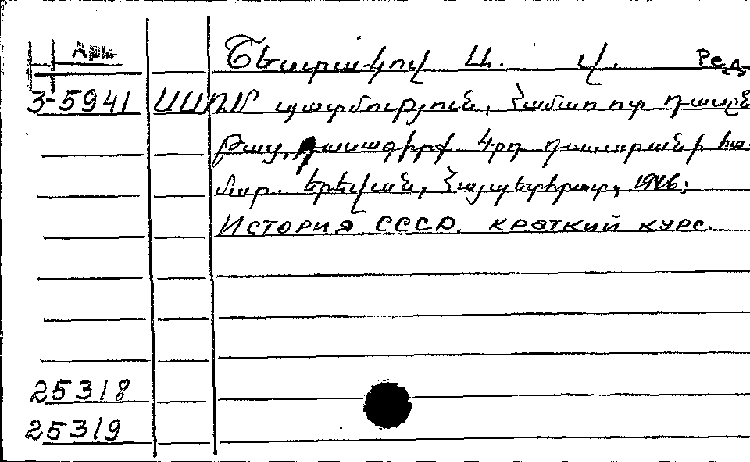 Арм
Շեստակով Ա. Վ. Ред.
3-5941 ՍՍՌՄ պատմություն, Համառոտ դասըն
թաց, դասագիրք 4րդ դասարանի հա-
մար. Երևան, Հայպետհրատ, 1946:
История СССР. краткий курс.
25318
25319